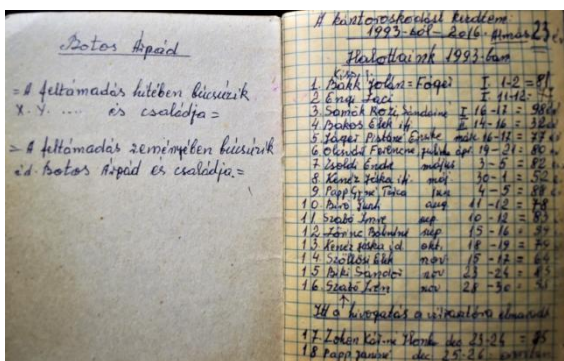 Botos Árpád
= A feltámadás hitében búcsúzik
X. Y. .... és családja =
= A feltámadás reményében búcsúzik
id. Botos Árpád és családja. =
A kántoroskodást kezdtem
1993-ból - 2016. Almás 23 év
Halottaink 1993-ban
1. Bakk Jolán = Fogei I. 1-2 = 81
2 Engi Jaci I 11-12 =
3. Samók Rozi Sándorné I 16-17 = 98 év
4 Bakos Elek ifj. I 14-16 = 32 év
5 Jáger Pistáné Enike márc 16-17 = 77 év
6 Ferencné Julia ápr 19-21 = 80 é
7 Zsoldi Endre május 3-5 = 82
8 Kenéz Jóska ifj. máj 30-1 = 52 é
9 Papp Gyné Terca jun 4-5 = 88
10 Biró aug 11-12 = 78
11 Szabó Imre sep. 10-12 = 83
12 Lőrinc Balintné sep 15-16 = 94
13 Kenéz Jóska id. okt. 18-19 = 75
14 Szöllősi Elek nov 15-17 = 64
15 Biki Sándor nov 23-24 = 83
16 Szabó Iren nov 28-30 =
Itt a hivogatás a virrasztóra elmaradt
17. Zoltan Kárné Ilonka dec 23-24 = 85
18. Papp Janiné dec 25-26